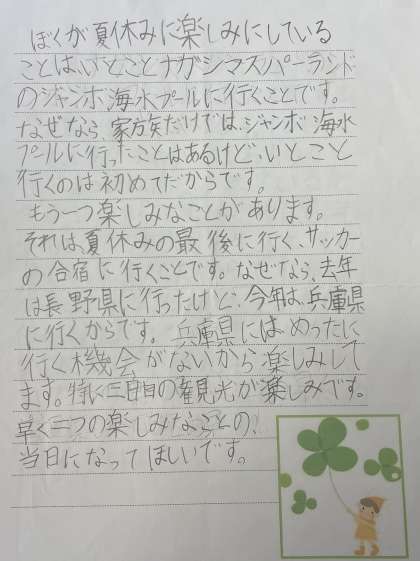 ぼくが夏休みに楽しみにしている
ことは、いとことナガシマスパーランド
のジャンボ海水プールに行くことです。
なぜなら、家族だけでは、ジャンボ海水
プールに行ったことはあるけど、いとこと
行くのは初めてだからです。
もう一つ楽しみなことがあります。
それは、夏休みの最後に行く、サッカー
の合宿に行くことです。なぜなら、去年
は長野県に行ったけど、今年は、兵庫県
に行くからです。兵庫県には、めったに
行く機会がないから楽しみして
ます。特に三日目の観光が楽しみです。
早く二つの楽しみなことの、
当日になってほしいです。